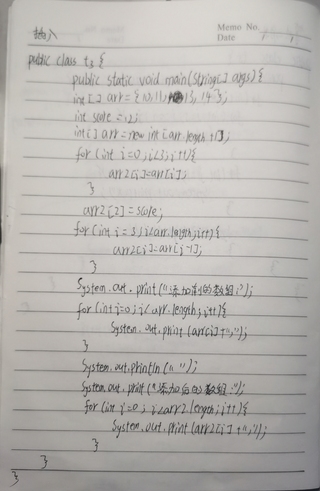 Memo No.
Date / /
public class t3 {
public static void main(String[] args){
int[] arr={10,11, 13, 14};
int scole=12;
int[] arr=new int[arr.length+1];
for(int i=0;i<3;i++){
arr2[i]=arr[i];
}
arr2[2]=scole;
for(int i=3;i<arr.length;i++){
arr2[i]=arr[i-1];
}
System.out.print("添加前的数组:");
for(int i=0;i<arr.length;i++){
System.out.print(arr[i]+",");
}
System.out.println(" ");
System.out.print("添加后的数组:");
for(int i=0;i<arr2.length;i++){
System.out.print(arr2[i]+",");
}
}
}